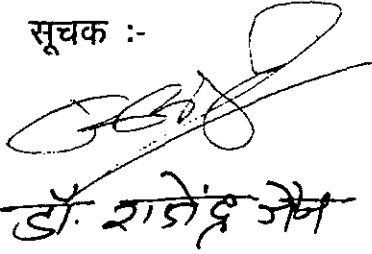 सूचक :-
डॉ. राजेंद्र जैन